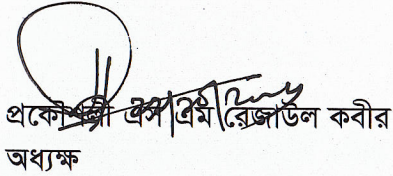 প্রকৌশলী এস এম রেজাউল কবীর
অধ্যক্ষ